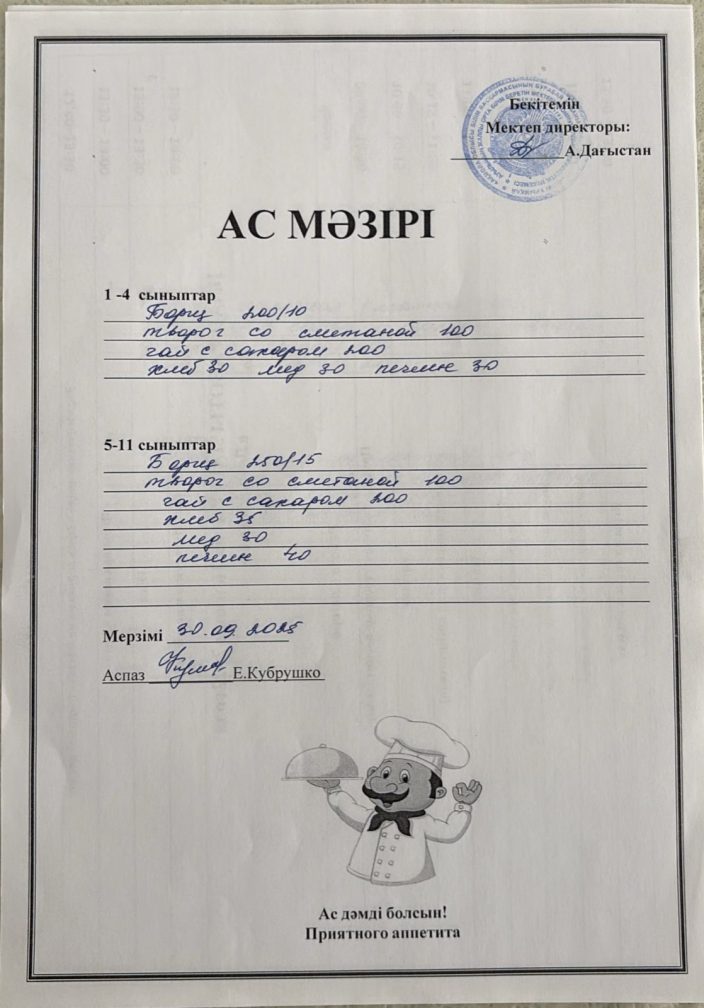 Бекітемін
Мектеп директоры:
А.Дағыстан
АС МӘЗІРІ
1 -4 сыныптар
Борщ 200/10
творог со сметаной 100
чай с сахаром 200
хлеб 30 мед 30 печение 30
5-11 сыныптар
Борщ 250/15
творог со сметаной 100
чай с сахаром 200
хлеб 35
мед 30
печение 40
Мерзімі 30.09.2025
Аспаз Е.Кубрушко
Ас дәмді болсын!
Приятного аппетита